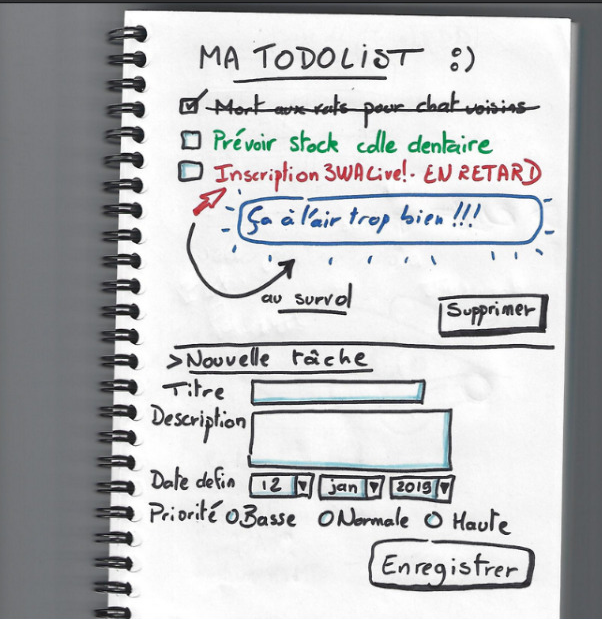 MA TODOLIST :)
Mort aux rats pour chat voisins
Prévoir stock colle dentaire
Inscription 3WALive! - EN RETARD
Ça à l'air trop bien !!!
au survol
Supprimer
> Nouvelle tâche
Titre
Description
Date de fin 12 jan 2019
Priorité Basse Normale Haute
Enregistrer